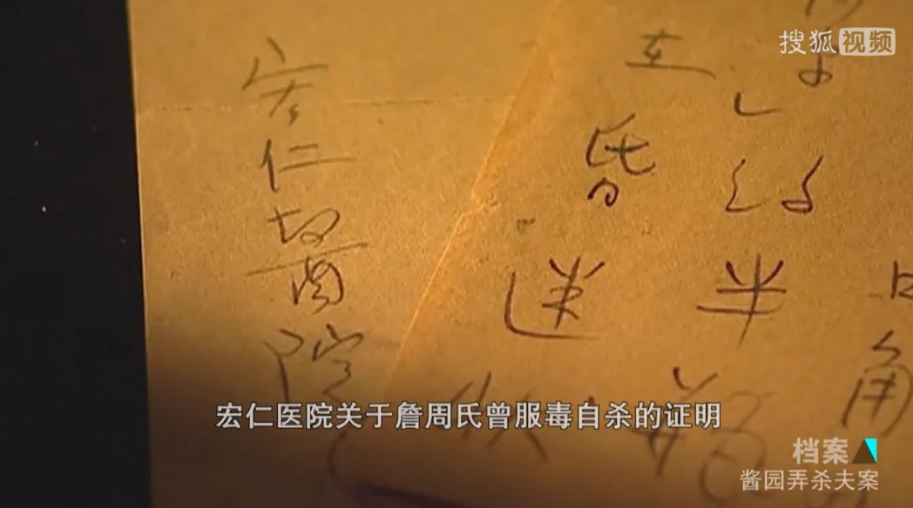 搜狐视频
在
昏
迷
状
半
瓶
角
宏仁醫院
宏仁医院关于詹周氏曾服毒自杀的证明
档案
酱园弄杀夫案